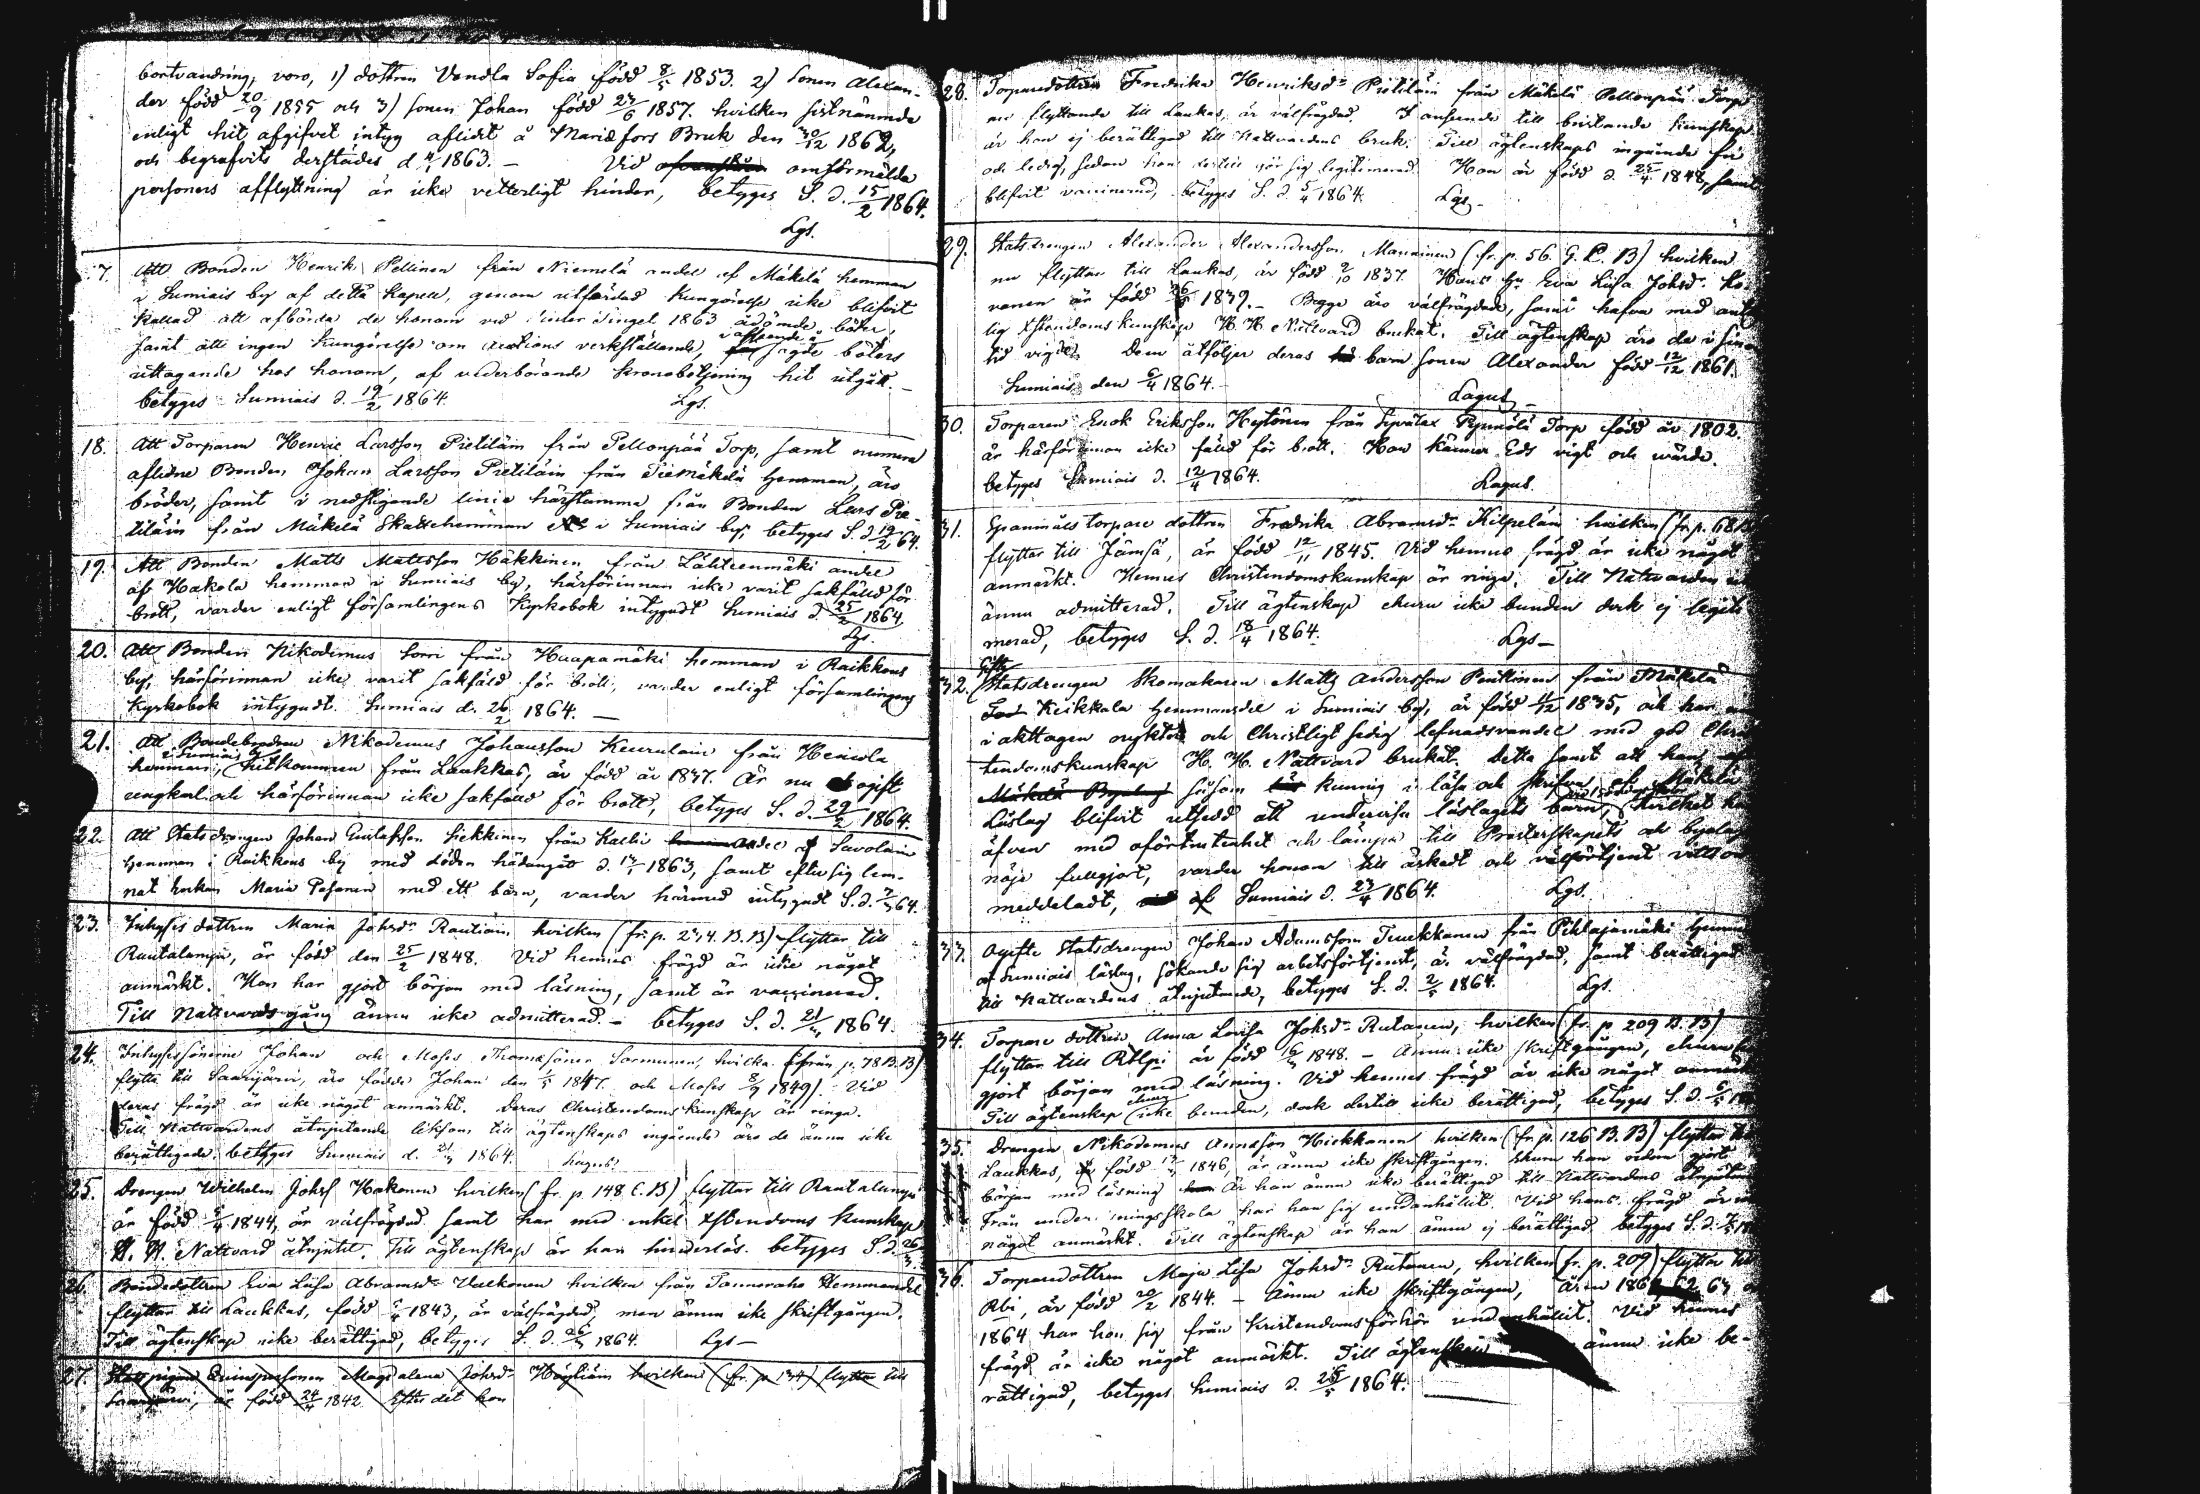 bortvandring, voro, 1) dottren Vendla Sofia född 8/5 1853. 2) Sonen Alexan-
der född 20/9 1855 och 3) sonen Johan född 27/6 1857. hvilken sistnämnde
enligt hit afgifvet intyg aflidit å Mariæfors Bruk den 30/12 1862,
och begrafvits derstädes d. 4/1 1863. – Vid omförmälda
personers afflyttning är icke vetterligt hinder, betyges S. d. 15/2 1864.
Lgs.
7. Att Bonden Henrik Pellinen från Niemelä andel af Mäkelä hemman
i Sumiais by af detta Kapell, genom utfärdad Kungörelse icke blifvit
kallad att afbörda de honom vid Vinter Tinget 1863 ådömde böter,
samt att ingen Kungörelse om auctions verkställande, sagde böters
uttagande hos honom, af vederbörande Kronobetjening hit utgått. –
betyges Sumiais d. 19/2 1864. Lgs.
18. Att Torparen Henric Larsson Pietiläin från Pellonpää Torp, samt numera
aflidne Bonden Johan Larsson Pietiläin från Tiemäkelä Hemman, äro
bröder, samt i nedstigande linie härstamma från Bonden Lars Pie-
tiläin från Mäkelä Skattehemman i Sumiais by; betyges S. d. 19/2 64.
19. Att Bonden Matts Mattsson Häkkinen från Lähteenmäki andel
af Hakola hemman i Sumiais by, härförinnan icke varit sakfälld för
brott, varder enligt församlingens Kyrkobok intygadt Sumiais d. 25/2 1864.
Lgs.
20. Att Bonden Nikodimus från Haapamäki hemman i Raikkaus
by, härförinnan icke varit sakfäld för brott, varder enligt församlingens
Kyrkobok intygadt. Sumiais d. 26/2 1864. –
21. Att Bondebrodren Nikodemus Johansson Keurulain från Heinola
i Sumiais by
hemman, hitkommen från Laukkas, är född år 1837. Är nu ogift
ungkarl och härförinnan icke sakfälld för brott, betyges S. d. 29/2 1864.
22. Att Statsdrengen Johan Gustafsson Liekkinen från Kallio andel af Savolain
Hemman i Raikkaus by med döden hädangått d. 1863, samt efter sig lem-
nat Enkan Maria Pasanen med ett barn, varder härmed intygadt S. d. 64.
23. Inhyses dottren Maria Johsdr Rautiain hvilken (fr. p. 234. B. B) flyttar till
Rautalampi, är född den 25/2 1848. Vid hennes frägd är icke något
anmärkt. Hon har gjort början med läsning, samt är vaccinerad.
Till Nattvardsgång ännu icke admitterad. – betyges S. d. 21/3 1864.
24. Inhysessönerne Johan och Moses Thomæsöner Sormunen, hvilka (från p. 78 B. B)
flytta till Saarijärvi, äro födde Johan den 1/5 1847. och Moses 8/9 1849). Vid
deras frägd är icke något anmärkt. Deras Christendoms kunskap är ringa.
Till Nattvardens åtnjutande liksom till ägtenskaps ingående äro de ännu icke
berättigade, betyges Sumiais d. 1864. Lagus.
25. Drengen Wilhelm Johsf Hakonen hvilken (fr. p. 148. C. B) flyttar till Rautalampi
är född 1844, är välfrägdad samt har med enkel Xstendoms kunskap
H. H. Nattvard åtnjutit. Till ägtenskap är han hinderlös. betyges S. d. 26/3
26. Bondedottren Eva Lisa Abramsdr Valkonen hvilken från Hemmandel
flyttar till Laukkas, född 1843, är välfrägdad, men ännu icke skriftgången.
Till ägtenskap icke berättigad, betyges S. d. 26/3 1864. Lgs –
27. Qvinspersonen Magdalena Johsdr hvilken (fr. p. 134) flyttar till
Saarijärvi, är född 24/4 1842. Efter det hon
28. Torparedottren Fredrika Henriksdr Pietiläin från Mäkelä Pellonpää Torp
nu flyttande till Laukas, är välfrägdad. I anseende till bristande kunskap
är hon ej berättigad till Nattvardens bruk. Till ägtenskaps ingående fri
och ledig, sedan hon dertill gör sig legitimerad. Hon är född d. 25/4 1848, samt
blifvit vaccinerad, betyges S. d. 5/4 1864. Lgs –
29. Statsdrengen Alexander Alexandersson Manninen (fr. p. 56. G. C. B) hvilken
nu flyttar till Laukas, är född 9/10 1837. Hans Hu Eva Lisa Johsd.
är född 1839. – Begge äro välfrägdade, samt hafva med
lig Xstendoms kunskap H. H. Nattvard brukat. Till ägtenskap äro de i sinom
tid vigde. Dem åtföljer deras barn sonen Alexander född 12/12 1861.
Sumiais den 6/4 1864.
Lagus –
30. Torparen Enok Eriksson Hytönen från Torp född år 1802.
är härförinnan icke fälld för brott. Hon känner Eds vigt och värde.
betyges Sumiais d. 12/4 1864. Lagus.
31. torpare dottren Fredrika Abramsdr Kilpeläin hvilken (fr. p. 68 B.
flyttar till Jämsä, är född 12/11 1845. Vid hennes frägd är icke något
anmärkt. Hennes Christendomskunskap är ringa. Till Nattvarden
ännu admitterad. Till ägtenskap ehuru icke bunden dock ej legiti-
merad, betyges S. d. 18/4 1864. Lgs –
Gifte
32. Statsdrengen Skomakaren Matts Andersson Penttinen från Mäkelä
Keikkala Hemmansdel i Sumiais by, är född 11/12 1835, och har
i akttagen nykter och Christligt sedig lefnadsvandel med god Chris-
tendomskunskap H. H. Nattvard brukat. Detta samt att han,
såsom kunnig i läsa och skrifva, af Mäkelä
Läslag blifvit utsedd att undervisa läslagets barn, hvilket han
äfven med oförtrutenhet och lämpa till Presterskapets och byalagets
nöje fullgjort, varder honom till äskadt och välförtjent vittsord
meddeladt, af Sumiais d. 23/4 1864. Lgs.
33. Ogifte Statsdrengen Johan Adamsson Tuukkanen från Pihlajamäki Hemman
af Sumiais läslag, sökande sig arbetsförtjenst, är välfrägdad, samt berättigad
till Nattvardens åtnjutande, betyges S. d. 2/5 1864. Lgs.
34. Torpare dottren Anna Lovisa Johsdr Rutanen, hvilken (fr. p 209 B. B)
flyttar till Rtlpi är född 1848. – Ännu icke skriftgången, ehuru
gjort början med läsning. Vid hennes frägd är icke något anmärkt
Till ägtenskap ehuru icke bunden, dock dertill icke berättigad, betyges S. d. 6/5
35. Drengen Nikodemus Annasson Hiekkanen hvilken (fr. p. 126 B. B) flyttar till
Laukkas, född 1846, är ännu icke skriftgången. Ehuru han redan gjort
början med läsning är han ännu icke berättigad till Nattvardens åtnjutande
Från undervisningsskola har han sig undanhållit. Vid hans frägd är
något anmärkt. Till ägtenskap är han ännu ej berättigad. betyges S. d.
36. Torparedottren Maja Lisa Johsdr Rutanen, hvilken (fr. p. 209) flyttar till
Rbi, är född 20/2 1844. – Ännu icke skriftgången, Åren 1861, 62, 63
1864 har hon sig från Kristendomsförhör undanhållit. Vid hennes
frägd är icke något anmärkt. Till ägtenskap ännu icke be-
rättigad, betyges Sumiais d. 1864.